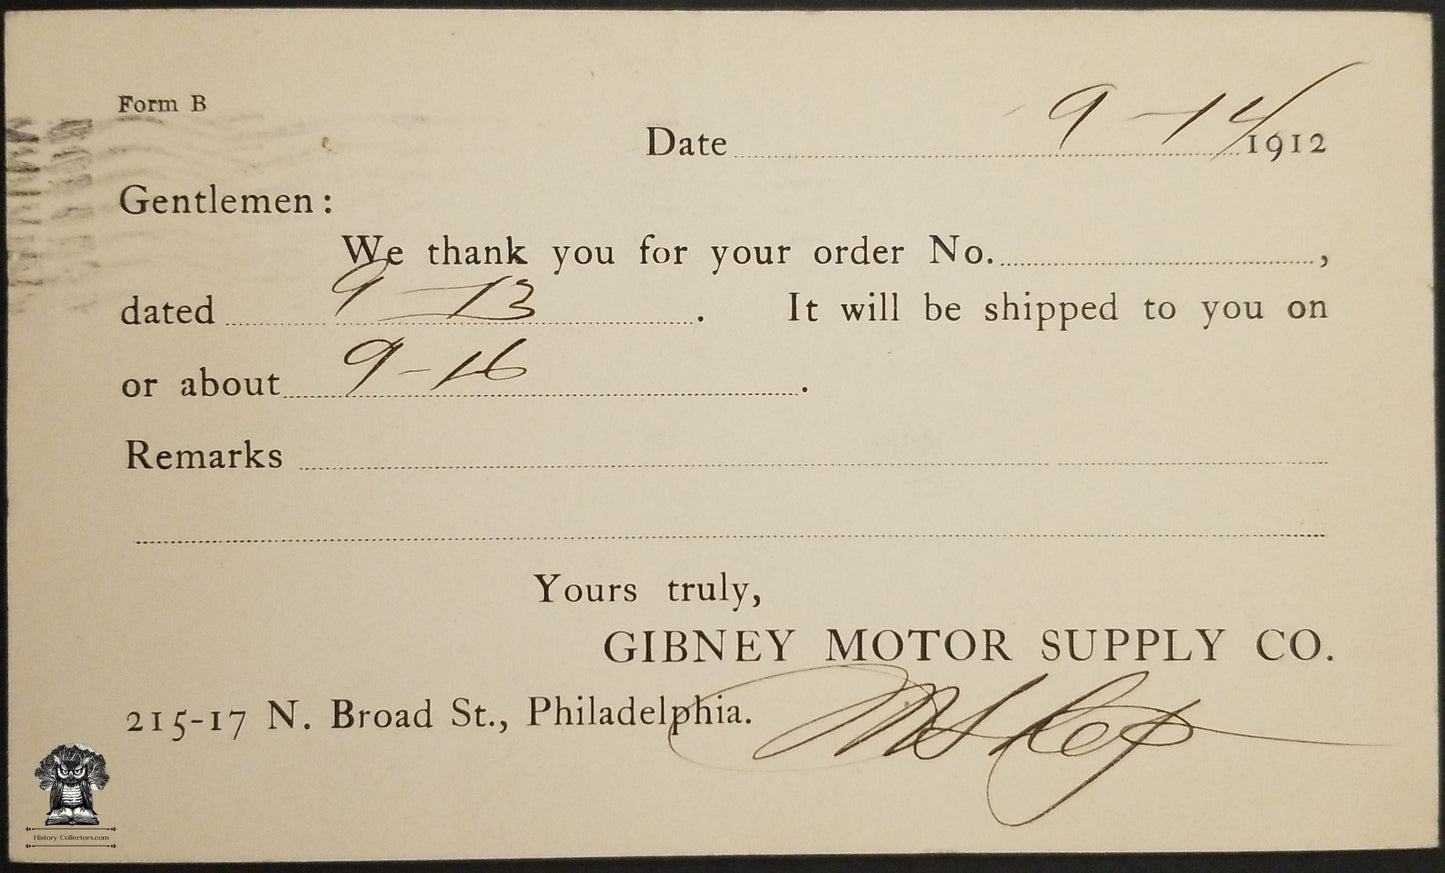 Form B
Date 9-14 1912
Gentlemen:
We thank you for your order No. ,
dated 9-13. It will be shipped to you on
or about 9-16.
Remarks
Yours truly,
GIBNEY MOTOR SUPPLY CO.
215-17 N. Broad St., Philadelphia.
History-Collectors.com